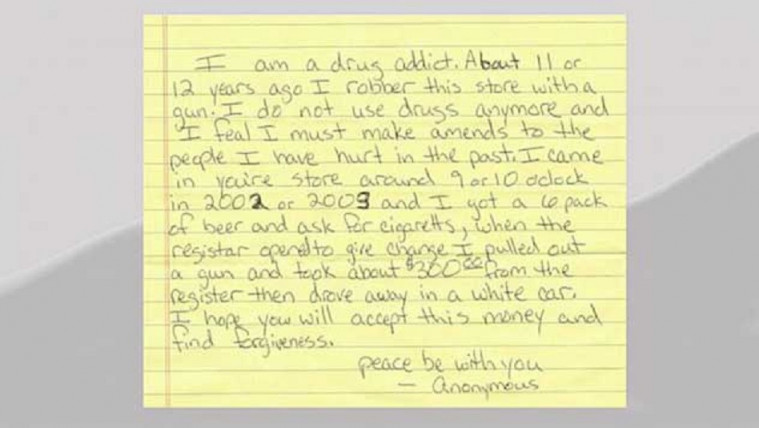 I am a drug addict. About 11 or
12 years ago I robber this store with a
gun. I do not use drugs anymore and
I feal I must make amends to the
people I have hurt in the past. I came
in youire store around 9 or 10 oclock
in 2002 or 2003 and I got a 6 pack
of beer and ask for cigaretts, when the
registar opend to give change I pulled out
a gun and took about $300.00 from the
register then drove away in a white car.
I hope you will accept this money and
find forgiveness.
peace be with you
— Anonymous